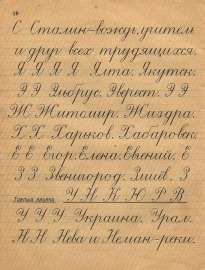 16
С Сталин-вождь, учитель
и друг всех трудящихся.
Я Я Я Я Ялта. Якуток.
Э Э Эльбрус. Эверест. Э Э
Ж Житомир. Жиздра.
Х. Х. Харьков. Хабаровск.
Е Е Егор. Елена. Евгений. Е
З З Звенигород. З
Третья группа. У Н К Ю Р В
У У У Украина. Урал.
Н. Н Нева и Неман-реки.